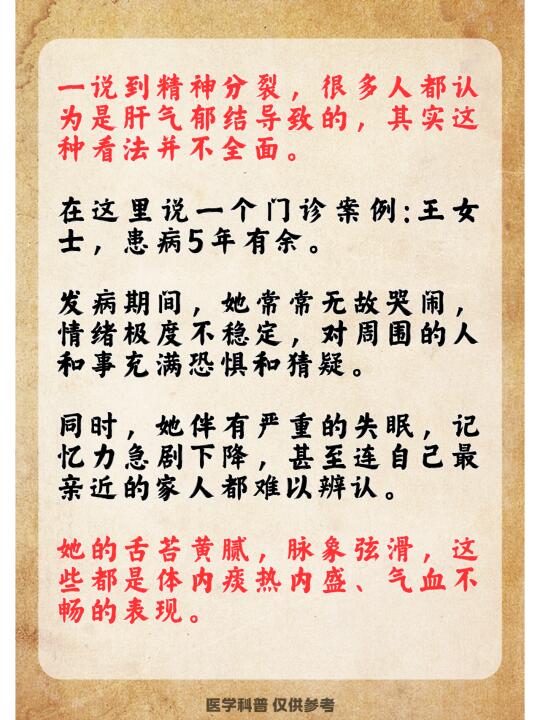 一说到精神分裂，很多人都认
为是肝气郁结导致的，其实这
种看法并不全面。
在这里说一个门诊案例:王女
士，患病5年有余。
发病期间，她常常无故哭闹，
情绪极度不稳定，对周围的人
和事充满恐惧和猜疑。
同时，她伴有严重的失眠，记
忆力急剧下降，甚至连自己最
亲近的家人都难以辨认。
她的舌苔黄腻，脉象弦滑，这
些都是体内痰热内盛、气血不
畅的表现。
医学科普 仅供参考